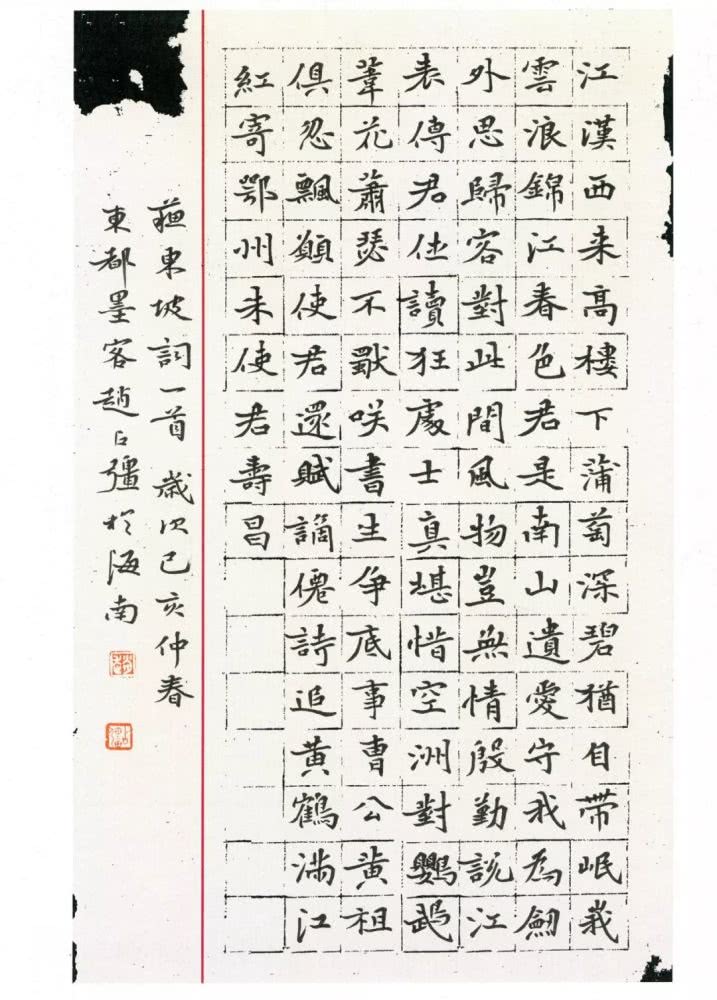 江漢西来高樓下蒲萄深碧猶自帶岷峩
雲浪錦江春色君是南山遺愛守我為劒
外思歸客對此間風物豈無情殷勤說江
表傳君休讀狂處士真堪惜空洲對鸚鵡
葦花蕭瑟不獨咲書生争底事曹公黄祖
俱忽飄願使君還賦謫僊詩追黄鶴滿江
紅寄鄂州朱使君壽昌
蘓東坡詞一首 歲次己亥仲春
東都墨客趙占彊於海南